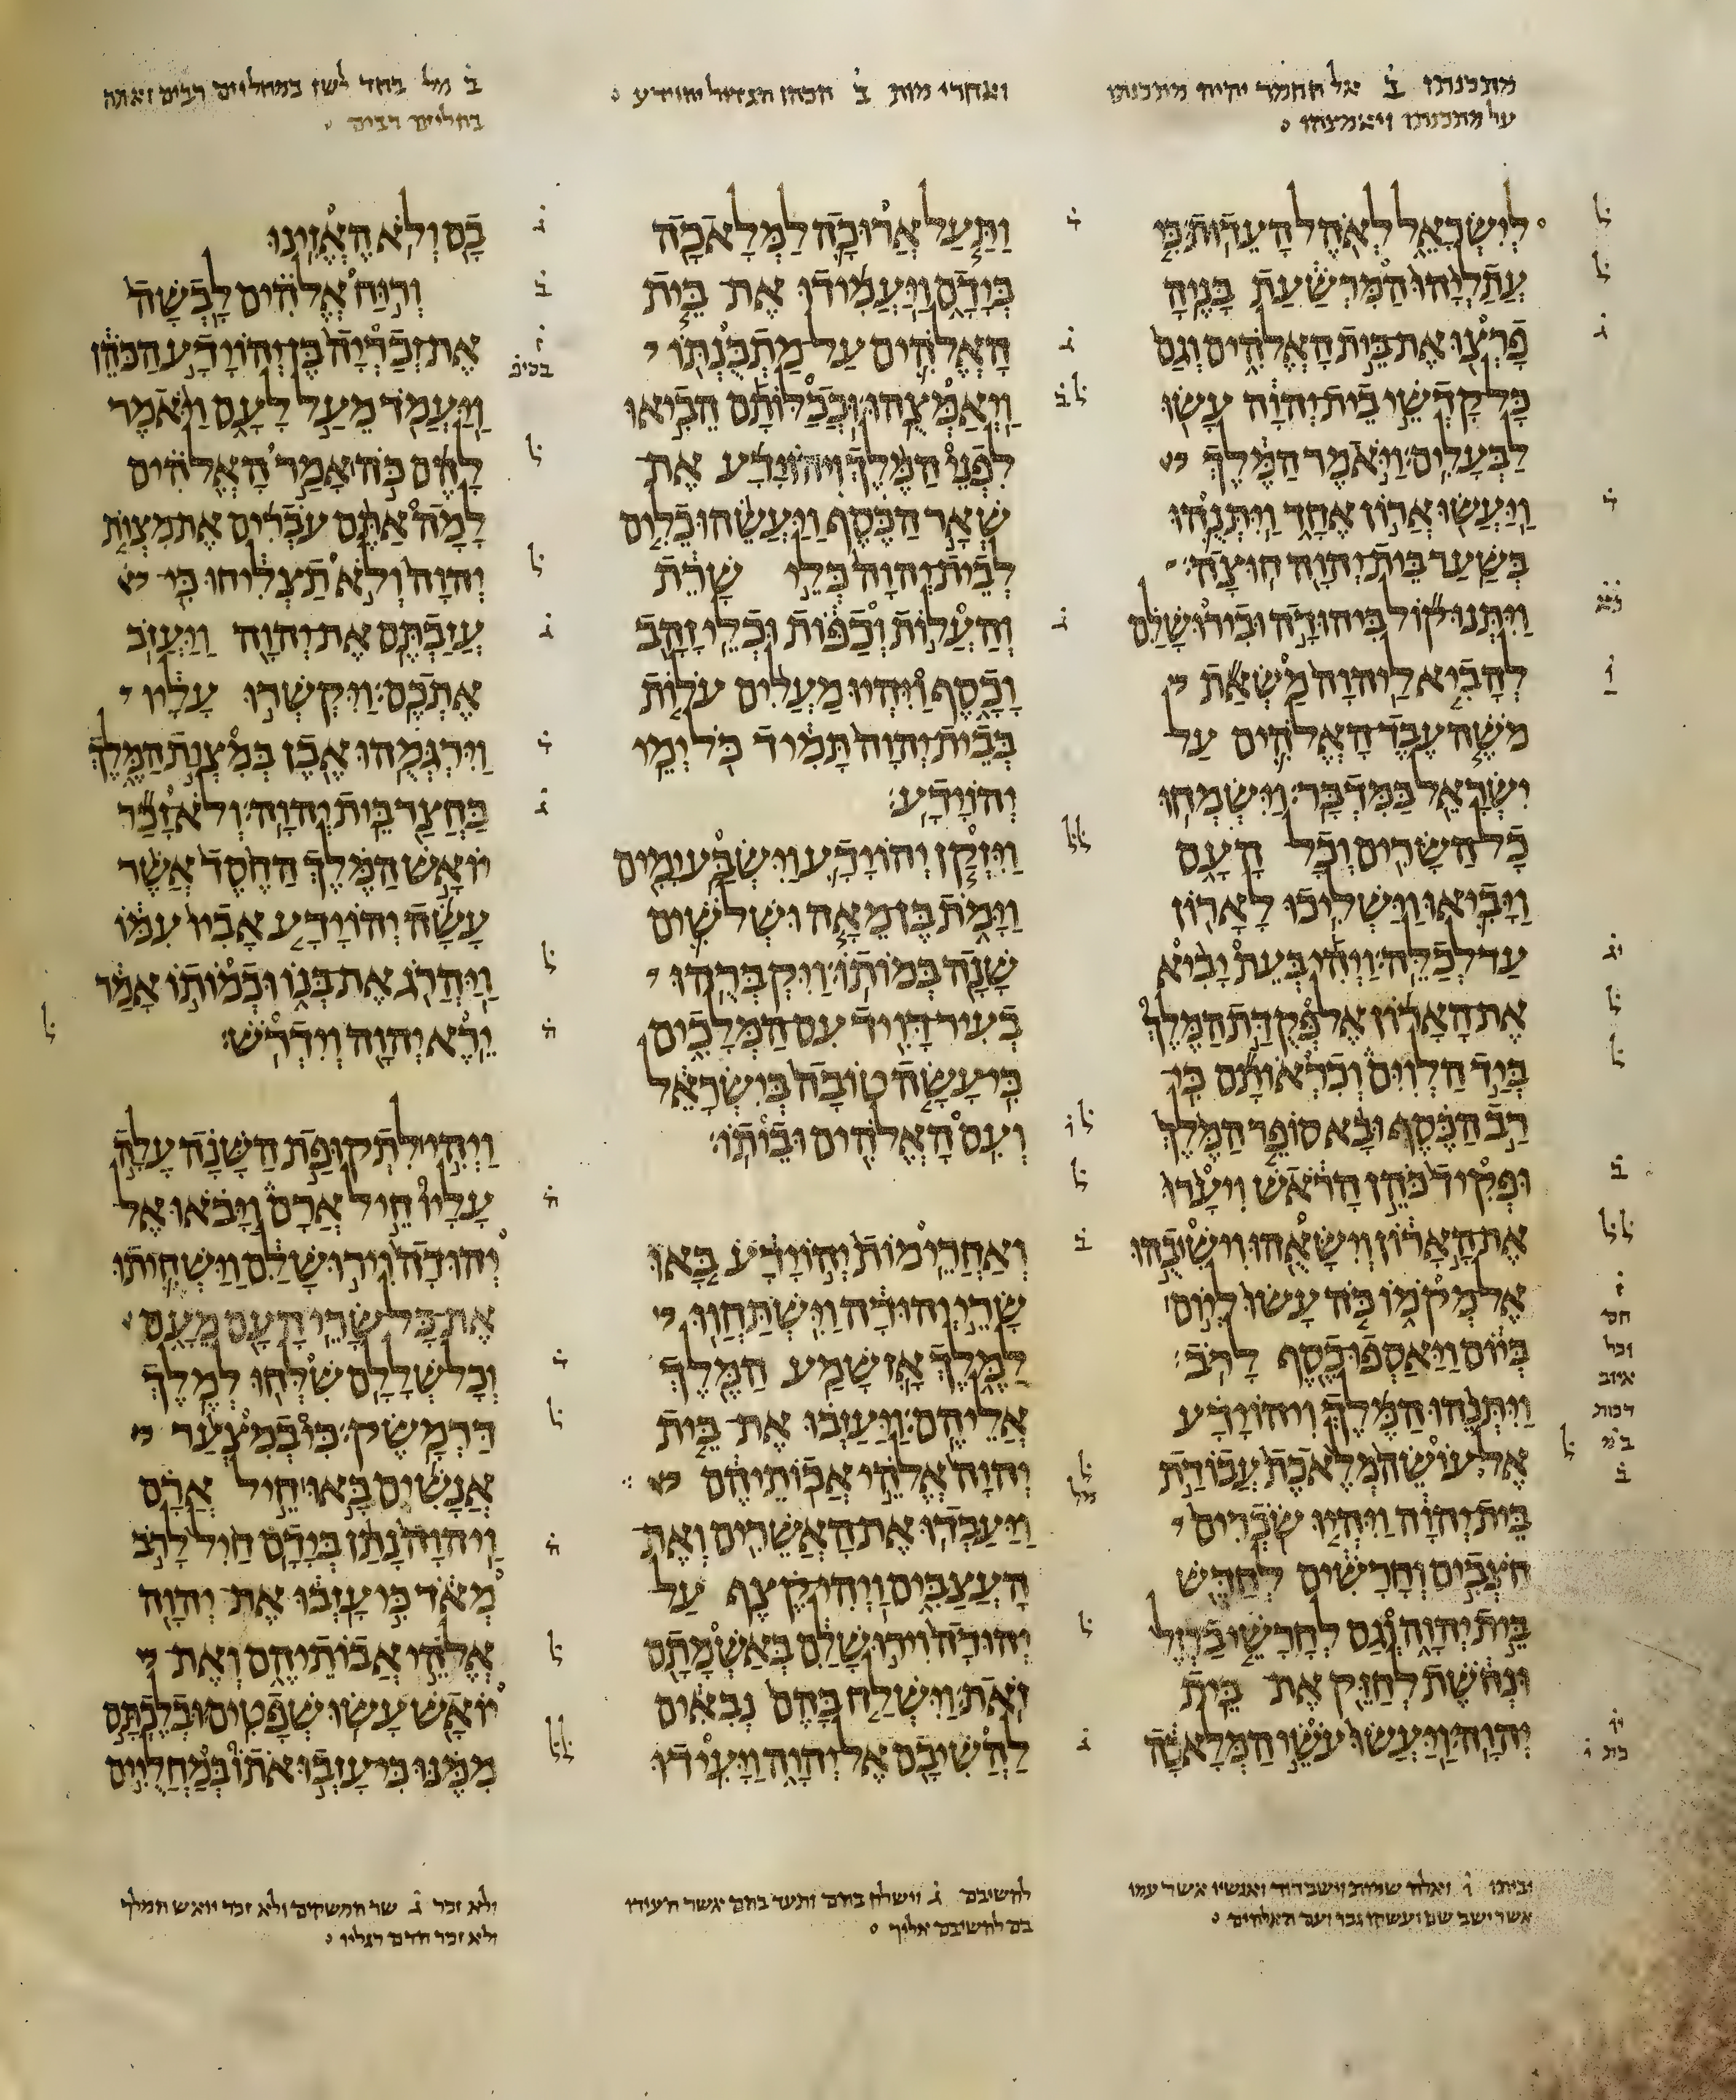 מתכנתו ב על מתכנתו ויאמצהו
ואחרי מות ב הכהן הגדול יהוידע
ב מל בחד לשן במחליים רבים ואתה
בחליים רבים
לישראל לאהל העדות כי
עתליהו המרשעת בניה
פרצו את בית האלהים וגם
כל קדשי בית יהוה עשו
לבעלים׃ ויאמר המלך
ויעשו ארון אחד ויתנהו
בשער בית יהוה חוצה׃
ויתנו קול ביהודה ובירושלם
להביא ליהוה משאת
משה עבד האלהים על
ישראל במדבר׃ וישמחו
כל השרים וכל העם
ויביאו וישליכו לארון
עד לכלה׃ ויהי בעת יביא
את הארון אל פקדת המלך
ביד הלוים וכראותם כי
רב הכסף ובא סופר המלך
ופקיד כהן הראש ויערו
את הארון וישאהו וישיבהו
אל מקמו כה עשו ליום
ביום ויאספו כסף לרב׃
ויתנהו המלך ויהוידע
אל עושה מלאכת עבודת
בית יהוה ויהיו שכרים
חצבים וחרשים לחדש
בית יהוה וגם לחרשי ברזל
ונחשת לחזק את בית
יהוה׃ ויעשו עשי המלאכה
ותעל ארוכה למלאכה
בידם ויעמידו את בית
האלהים על מתכנתו
ויאמצהו׃ וככלותם הביאו
לפני המלך ויהוידע את
שאר הכסף ויעשהו כלים
לבית יהוה כלי שרת
והעלות וכפות וכלי זהב
וכסף ויהיו מעלים עלות
בבית יהוה תמיד כל ימי
יהוידע׃
ויזקן יהוידע וישבע ימים
וימת בן מאה ושלשים
שנה במותו׃ ויקברהו
בעיר דויד עם המלכים
כי עשה טובה בישראל
ועם האלהים וביתו׃
ואחרי מות יהוידע באו
שרי יהודה וישתחוו
למלך אז שמע המלך
אליהם׃ ויעזבו את בית
יהוה אלהי אבותיהם
ויעבדו את האשרים ואת
העצבים ויהי קצף על
יהודה וירושלם באשמתם
זאת׃ וישלח בהם נבאים
להשיבם אל יהוה ויעידו
בם ולא האזינו׃
ורוח אלהים לבשה
את זכריה בן יהוידע הכהן
ויעמד מעל לעם ויאמר
להם כה אמר האלהים
למה אתם עברים את מצות
יהוה ולא תצליחו כי
עזבתם את יהוה ויעזב
אתכם׃ ויקשרו עליו
וירגמהו אבן במצות המלך
בחצר בית יהוה׃ ולא זכר
יואש המלך החסד אשר
עשה יהוידע אביו עמו
ויהרג את בנו וכמותו אמר
ירא יהוה וידרש׃
ויהי לתקופת השנה עלה
עליו חיל ארם ויבאו אל
יהודה וירושלם וישחיתו
את כל שרי העם מעם
וכל שללם שלחו למלך
דרמשק׃ כי במצער
אנשים באו חיל ארם
ויהוה נתן בידם חיל לרב
מאד כי עזבו את יהוה
אלהי אבותיהם ואת
יואש עשו שפטים׃ ובלכתם
ממנו כי עזבו אתו במחליים
להשיבם ג וישלח בהם ותעד בהם אשר העידו
בם להשיבם אליך
ולא זכר ג שר המשקים ולא זכר יואש המלך
ולא זכר הדם רגליו